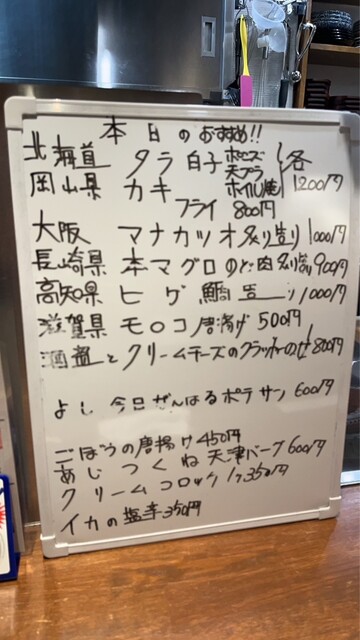 本日のおすすめ!!
北海道 タラ白子 ポン酢 天プラ ホイル焼 各1200円
岡山県 カキフライ 800円
大阪 マナカツオ炙り造り 1000円
長崎県 本マグロのど肉炙り 900円
高知県 ヒゲ鯛造り 1000円
滋賀県 モロコ唐揚げ 500円
酒盗とクリームチーズのクラッカーのせ 800円
よし、今日ぜんはるポテサン 600円
ごぼうの唐揚げ 450円
あじつくね天津バーグ 600円
クリームコロッケ 1ケ350円
イカの塩辛 350円